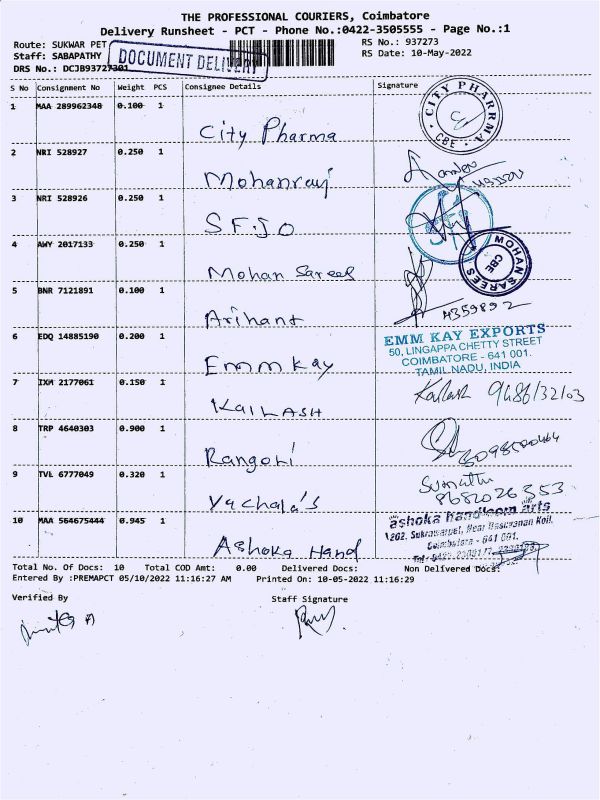 THE PROFESSIONAL COURIERS, Coimbatore
Delivery Runsheet - PCT - Phone No.:0422-3505555 - Page No.:1
Route: SUKWAR PET
RS No.: 937273
Staff: SABAPATHY
RS Date: 10-May-2022
DOCUMENT DELIVERY
DRS No.: DCJB93727301
S No Consignment No Weight PCS Consignee Details Signature
1 MAA 289962348 0.100 1 City Pharma
CITY PHARMA CBE
2 NRI 528927 0.250 1 Mohanraj
3 NRI 528926 0.250 1 S.F.JO
4 AWY 2017133 0.250 1 Mohan Sarees
MOHAN SAREES CBE
5 BNR 7121891 0.100 1 Arihant
6 EDQ 14885190 0.200 1 Emm Kay
EMM KAY EXPORTS
50, LINGAPPA CHETTY STREET
COIMBATORE - 641 001.
TAMIL NADU, INDIA
7 IXM 2177061 0.150 1 KAILASH
Kailash 9486132103
8 TRP 4640303 0.900 1 Rangoli
9 TVL 6777049 0.320 1 Yachala's
Sumathi
8682026353
10 MAA 564675444 0.945 1 Ashoka Hand
ashoka handloom arts
202, Sukrawarpet, Near Baswanan Koil,
Coimbatore - 641 001.
Total No. Of Docs: 10 Total COD Amt: 0.00 Delivered Docs: Non Delivered Docs:
Entered By :PREMAPCT 05/10/2022 11:16:27 AM Printed On: 10-05-2022 11:16:29
Verified By Staff Signature